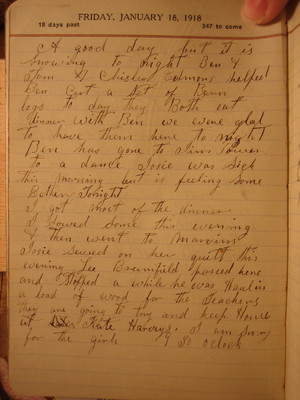 FRIDAY, JANUARY 18, 1918
18 days past 347 to come
A good day but it is
snowing to night Ben &
Tom & Chicken Edmons helped
Ben Cut a Set of Barn
logs to day they Both eat
dinner with Ben we were glad
to have them here to night
Ben has gone to Jims
to a dance Josie was Sick
this morning but is feeling some
Better Tonight
I got most of the dinner.
I Sewed Some this evening
& then went to Marvins
Josie Sewed on her quilt this
evening Lee Broomfield passed here
and Stopped a while he was Haulin
a load of wood for the Teachers
they are going to try and keep House
at Kate Harveys. I am Sorry
for the girls 9 30 oclock